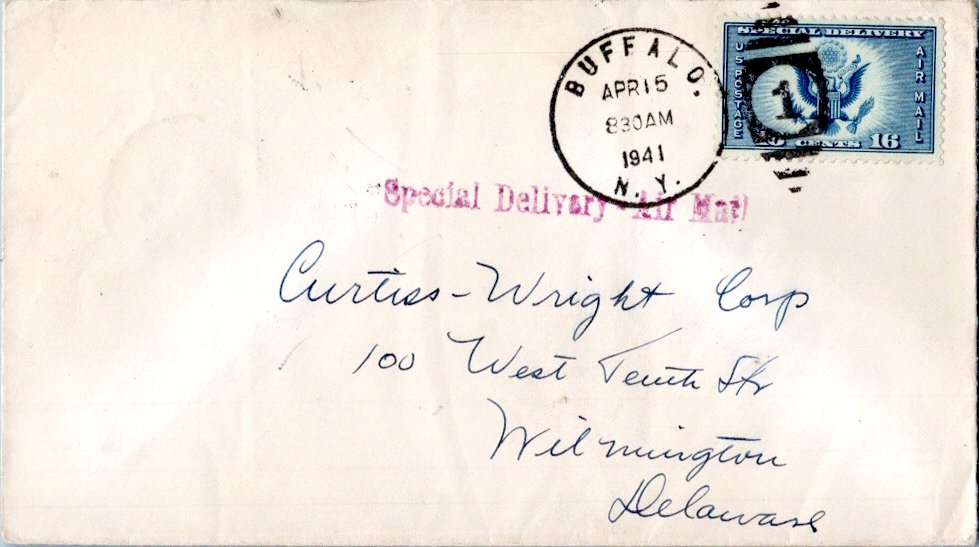 BUFFALO.
APR 15
830AM
1941
N. Y.
SPECIAL DELIVERY
US POSTAGE
AIR MAIL
1
CENTS 16
Special Delivery - Air Mail
Curtiss-Wright Corp
100 West Tenth Str
Wilmington
Delaware